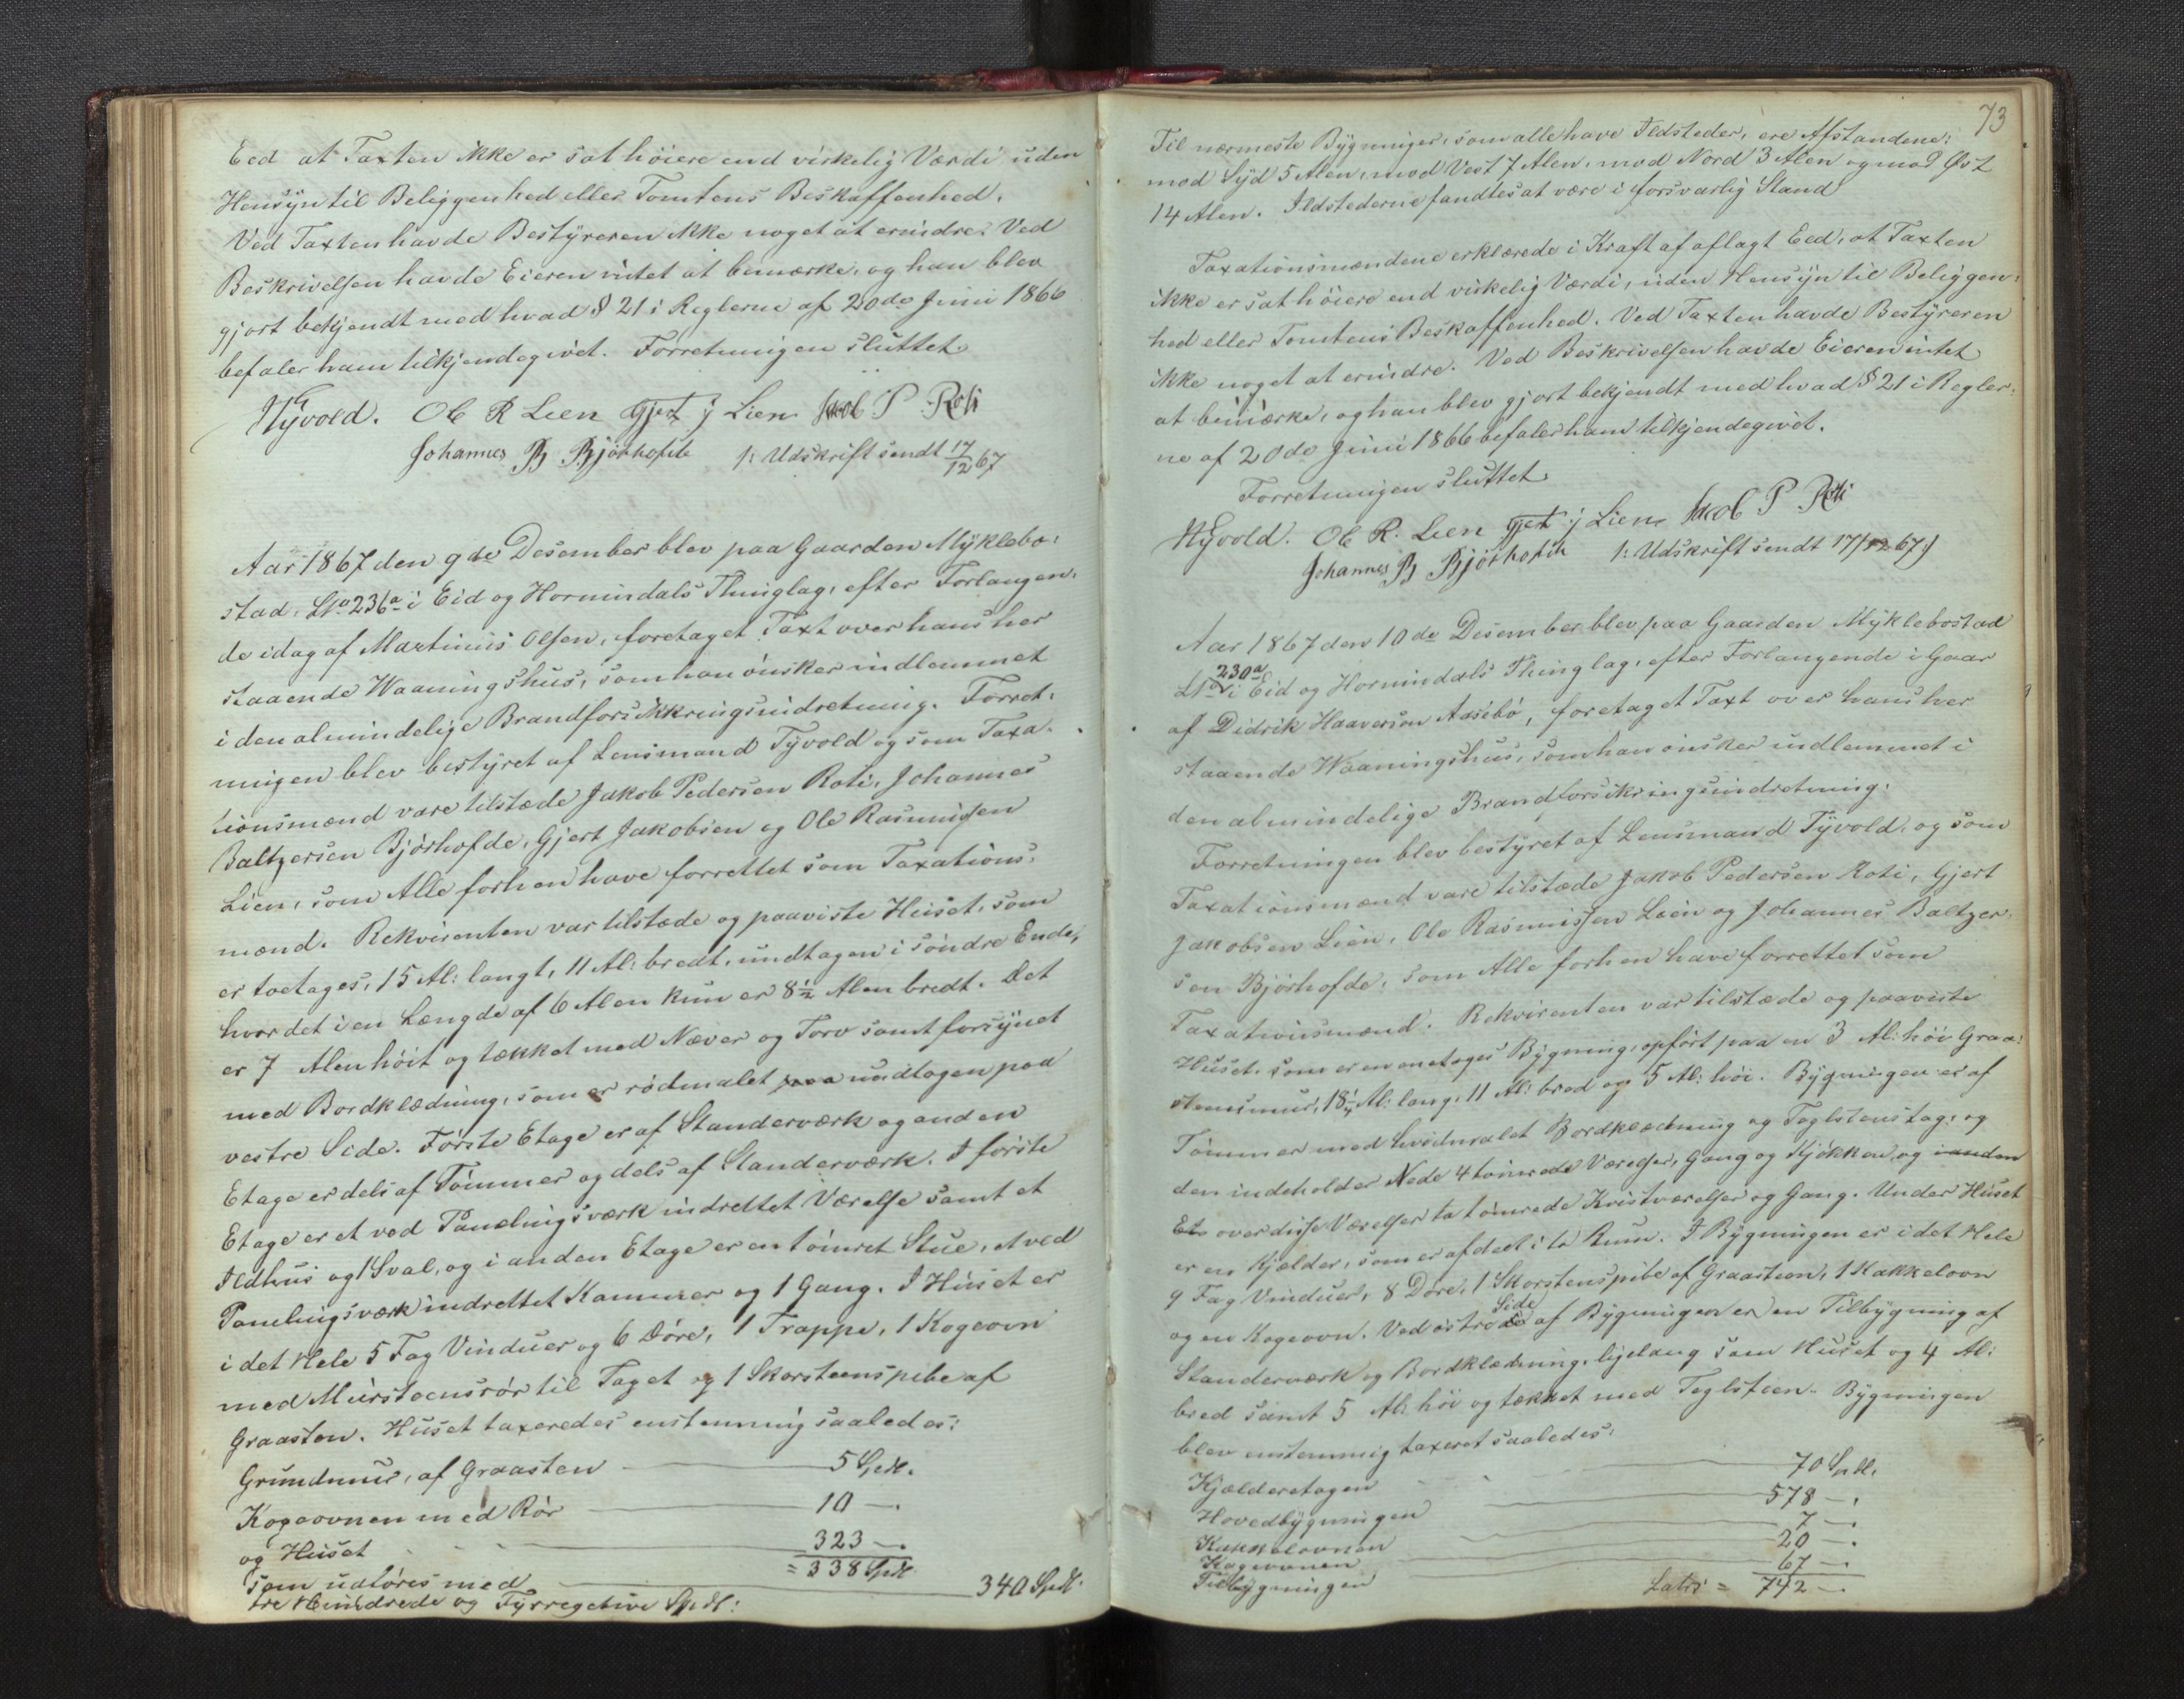 Eed at Taxten ikke er sat höiere end virkelig Værdi uden
Hensyn til Beliggenhed eller Tomtens Beskaffenhed.
Ved Taxten havde Bestyreren ikke noget at erindre. Ved
Beskrivelsen havde Eieren intet at bemærke, og han blev
gjort bekjendt med hvad § 21 i Reglerne af 20de Juni 1866
befaler ham tilkjendegivet. Forretningen sluttet
Tyvold. Ole R Lien Gjert j Lien Jacob P Roti
Johannes B Bjørhofde /: Udskrift sendt 17/12 67
Aar 1867 den 9de Desember blev paa Gaarden Myklebo:
stad, LNo 236a i Eid og Hornindals Thinglag, efter Forlangen:
de idag af Martinus Olsen, foretaget Taxt over hans her
staaende Waaningshus, som han önsker indlemmet
i den almindelige Brandforsikkringsindretning. Forret:
ningen blev bestyret af Lensmand Tyvold og som Taxa:
tionsmænd vare tilstæde Jakob Pedersen Roti, Johannes
Baltzersen Bjørhofde, Gjert Jakobsen og Ole Rasmussen
Lien, som Alle forhen have forrettet som Taxations:
mænd. Rekvirenten var tilstæde og paaviste Huset, som
er toetages, 15 Al: langt, 11 Al: bredt, undtagen i söndre Ende,
hvor det i en Længde af 6 Alen kun er 8½ Alen bredt. Det
er 7 Alen höit og tækket med Næver og Torv samt forsynet
med Bordklædning, som er rödmalet paa undtagen paa
vestre Side. Förste Etage er af Standerværk og anden
Etage er dels af Tömmer og dels af Standerværk. I förste
Etage er et ved Panelingsværk indrettet Værelse samt et
Ildhus og 1 Sval, og i anden Etage er en tömret Stue, et ved
Panelingsværk indrettet Kammer og 1 Gang. I Huset er
i det Hele 5 Fag Vinduer og 6 Döre, 1 Trappe, 1 Kogeovn
med Mürsteensrör til Taget og 1 Skorsteenspibe af
Graasten. Huset taxeredes enstemmig saaledes:
Grundmur, af Graasten 5 Spdl.
Kogeovnen med Rör 10 —.
og Huset 323 —.
= 338 Spdl.
som udföres med 340 Spdl.
tre Hundrede og Fyrregetive Spdl:
73
Til nærmeste Bygninger, som alle have Ildsteder, ere Afstandene:
mod Syd 5 Alen, mod Vest 7 Alen, mod Nord 3 Alen og mod Øst
14 Alen. Ildstederne fandtes at være i forsvarlig Stand
Taxationsmændene erklærede i Kraft af aflagt Eed, at Taxten
ikke er sat höiere end virkelig Værdi, uden Hensyn til Beliggen:
hed eller Tomtens Beskaffenhed. Ved Taxten havde Bestyreren
ikke noget at erindre. Ved Beskrivelsen havde Eieren intet
at bemærke, og han blev gjort bekjendt med hvad § 21 i Regler:
ne af 20de Juni 1866 befaler ham tilkjendegivet.
Forretningen sluttet
Tyvold. Ole R. Lien Gjert j Lien Jacob P Roti
Johannes B Bjørhofde /: Udskrift sendt 17/12 67:/
Aar 1867 den 10de Desember blev paa Gaarden Myklebostad
LNo 230a i Eid og Hornindals Thinglag, efter Forlangende i Gaar
af Didrik Haaversen Aasebö, foretaget Taxt over hans her
staaende Waaningshus, som han önsker indlemmet i
den almindelige Brandforsikringsindretning.
Forretningen blev bestyret af Lensmand Tyvold, og som
Taxationsmænd vare tilstæde Jakob Pedersen Roti, Gjert
Jakobsen Lien, Ole Rasmussen Lien og Johannes Baltzer:
sen Bjørhofde, som Alle forhen have forrettet som
Taxationsmænd. Rekvirenten var tilstæde og paaviste
Huset, som er en enetages Bygning, opfört paa en 3 Al: höi Graa:
steensmur, 18¼ Al: lang, 11 Al: bred og 5 Al: höi. Bygningen er af
Tömmer med hvidmalet Bordklædning og Teglsteenstag, og
den indeholder Nede 4 tömrede Værelser, Gang og Kjökken, og i anden
Et over disse Værelser to tömrede Kvistværelser og Gang. Under Huset
er en Kjælder, som er afdeelt i to Rum. I Bygningen er i det Hele
9 Fag Vinduer, 8 Döre, 1 Skorstenspibe af Graasteen, 1 Kakkelovn
og en Kogeovn. Ved östre Side af Bygningen er en Tilbygning af
Standerværk og Bordklædning, ligelang som Huset og 4 Al:
bred samt 5 Al: höi og tækket med Teglsteen. Bygningen
blev enstemmig taxeret saaledes:
Kjælderetagen 70 Spdl.
Hovedbygningen 578 —.
Kakkelovnen 7 —.
Kogeovnen 20 —.
Tilbygningen 67 —.
Latus = 742 —.